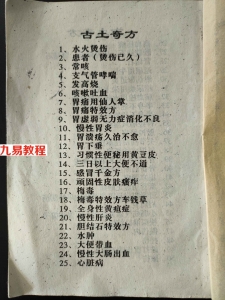 古土奇方
1、水火烫伤
2、患者（烫伤已久）
3、常咳
4、支气管哮喘
5、发高烧
6、咳嗽吐血
7、胃痛用仙人掌
8、胃痛特效方
9、胃虚弱无力症消化不良
10、慢性胃炎
11、胃溃疡久治不愈
12、胃下垂
13、习惯性便秘用黄豆皮
14、三日以上大便不通
15、感冒千金方
16、顽固性皮肤瘙痒
17、梅毒
18、梅毒特效方车钱草
19、全身性黄疸症
20、慢性肝炎
21、胆结石特效方
22、水肿
23、大便带血
24、慢性大肠出血
25、心脏病
九易教程